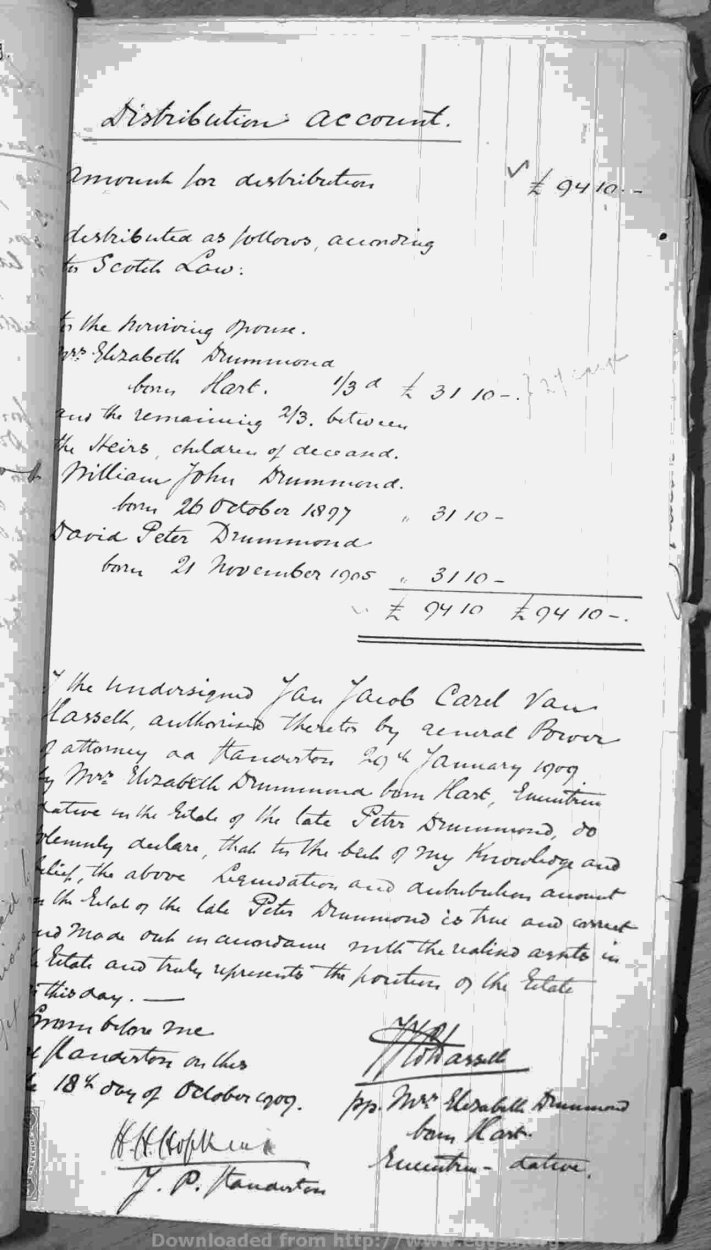 Distribution account.
Amount for distribution £ 94 10 . -
distributed as follows, according
to Scotch Law:
to the surviving spouse.
Mrs Elizabeth Drummond
born Hart. 1/3 d £ 31 10 - .
and the remaining 2/3. between
the Heirs, children of deceased.
William John Drummond.
born 26 October 1897 " 31 10 -
David Peter Drummond
born 21 November 1905 " 31 10 -
£ 94 10 £ 94 10 - .
I the undersigned Jan Jacob Carel Van
Hasselt, authorised thereto by general Power
attorney dd Standerton 29th January 1909
by Mrs Elizabeth Drummond born Hart, Executrix
dative in the Estate of the late Peter Drummond, do
solemnly declare, that to the best of my Knowledge and
belief, the above Liquidation and distribution account
in the Estate of the late Peter Drummond is true and correct
and made out in accordance with the realised assets in
Estate and truly represents the position of the Estate
this day. —
Sworn before me
at Standerton on this
18th day of October 1909.
JJC v Hasselt
pp. Mrs Elizabeth Drummond
born Hart.
Executrix - dative.
H.H. Hopkins
J. P. Standerton
Downloaded from http://www.eggsa.org